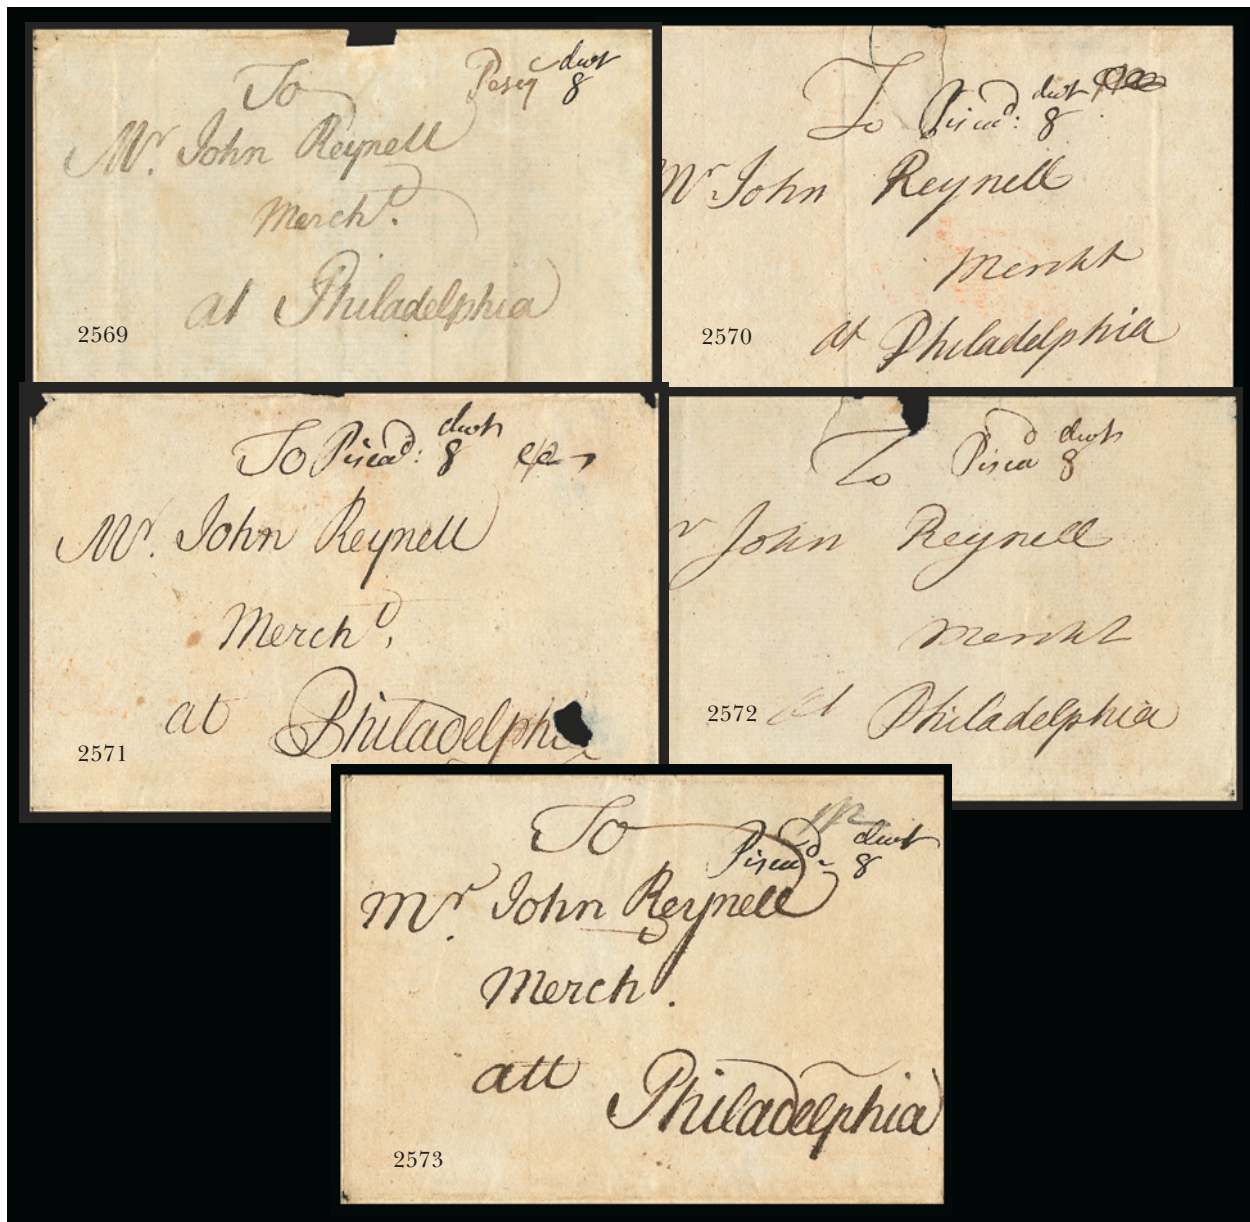 To Pescq dwt
8
Mr. John Reynell
Mercht.
at Philadelphia
2569
To Piscad: dwt
8
Mr John Reynell
Mercht
at Philadelphia
2570
To Piscad: dwts
8
Mr. John Reynell
Mercht,
at Philadelphi
2571
To Piscad dwts
8
r John Reynell
Mercht
at Philadelphia
2572
To
Piscad. dwt
8
Mr. John Reynell
Merch.
att Philadelphia
2573